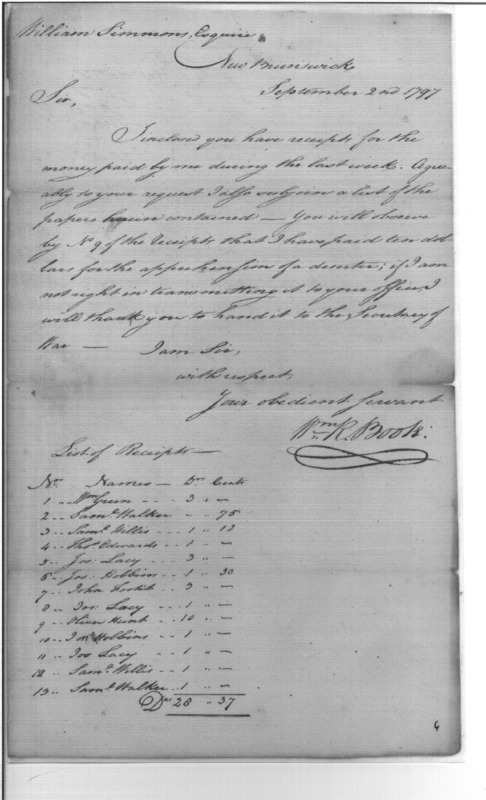 William Simmons, Esquire
New Brunswick
September 2nd 1797
Sir,
Inclosed you have receipts for the
money paid by me during the last week. Agree-
ably to your request I also subjoin a list of the
papers herein contained — You will observe
by No. 9 of the receipts that I have paid ten dol-
lars for the apprehension of a deserter; if I am
not right in transmitting it to your office I
will thank you to hand it to the Secretary of
War —
I am Sir,
with respect,
Your obedient Servant
Wm. R. Boote.
List of Receipts —
No. Names — Drs Cents
1 .. Wm Green - - 3 .. —
2 .. Saml. Walker - - .. 75
3 .. Saml. Willis - - 1 ..
4 .. Thos. Edwards - - 1 .. —
5 .. Jos: Lacy - - 3 .. —
6 .. Jos: Hobbins - - 1 .. 30
7 .. John - - 3 .. —
8 .. Jos: Lacy - - 1 .. —
9 .. Oliver Hunt - - 10 .. —
10 .. Jos Hobbins - - 1 .. —
11 .. Jos Lacy - - 1 .. —
12 .. Saml. Willis - - 1 .. —
13 .. Saml. Walker - 1 .. —
Drs 28 - 37